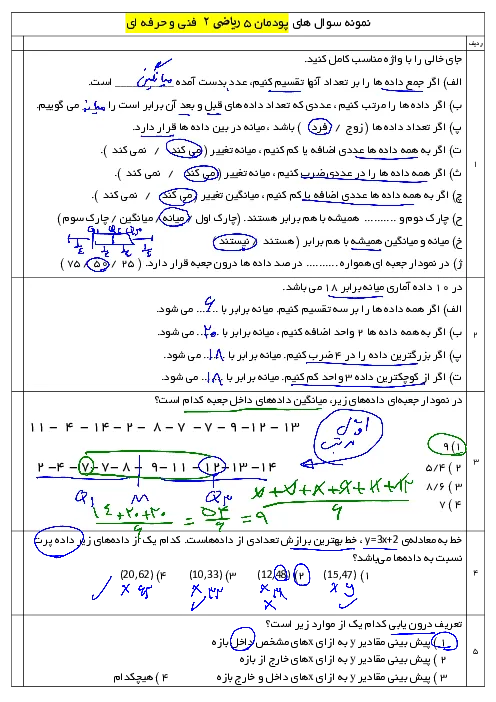 نمونه سوال های پودمان ۵ ریاضی ۲ فنی و حرفه ای
ردیف
جای خالی را با واژه مناسب کامل کنید.
الف) اگر جمع داده ها را بر تعداد آنها تقسیم کنیم، عدد بدست آمده میانگین است.
ب) اگر داده ها را مرتب کنیم ، عددی که تعداد داده های قبل و بعد آن برابر است را میانه می گوییم.
پ) اگر تعداد داده ها ( زوج / فرد ) باشد ، میانه در بین داده ها قرار دارد.
ت) اگر به همه داده ها عددی اضافه یا کم کنیم ، میانه تغییر ( می کند / نمی کند ).
ث) اگر همه داده ها را در عددی ضرب کنیم ، میانه تغییر ( می کند / نمی کند ).
چ) اگر به همه داده ها عددی اضافه یا کم کنیم ، میانگین تغییر ( می کند / نمی کند ).
ح) چارک دوم و .......... همیشه با هم برابر هستند. (چارک اول / میانه / میانگین / چارک سوم )
خ) میانه و میانگین همیشه با هم برابر ( هستند / نیستند )
ژ) در نمودار جعبه ای همواره .......... در صد داده ها درون جعبه قرار دارد. ( ۲۵ / ۵۰ / ۷۵ )
۱
در ۱۰ داده آماری میانه برابر ۱۸ می باشد.
الف) اگر همه داده ها را بر سه تقسیم کنیم. میانه برابر با ..۶.. می شود.
ب) اگر به همه داده ها ۲ واحد اضافه کنیم ، میانه برابر با ..۲۰.. می شود.
پ) اگر بزرگترین داده را در ۴ ضرب کنیم. میانه برابر با ..۱۸.. می شود.
ت) اگر از کوچکترین داده ۳ واحد کم کنیم. میانه برابر با ..۱۸.. می شود.
۲
در نمودار جعبه‌ای داده‌های زیر، میانگین داده‌های داخل جعبه کدام است؟
11 – 4 – 14 – 2 – 8 – 7 – 7 – 9 – 12 – 13
اول مرتب
۱) ۹
2 – 4 – 7 – 7 – 8 – 9 – 11 – 12 – 13 – 14
۲ ) ۵/۴
Q۱ M Q۳
۳ ) ۸/۶
۴ ) ۷
= ۵۴/۶ = ۹
۳
خط به معادله‌ی y=3x+2 ، خط بهترین برازش تعدادی از داده‌هاست. کدام یک از داده‌های زیر داده پرت
نسبت به داده‌ها می‌باشد؟
۱) (15,47) ۲) (12,48) ۳) (10,33) ۴) (20,62)
x y
۴
تعریف درون یابی کدام یک از موارد زیر است؟
۱ ) پیش بینی مقادیر y به ازای xهای مشخص داخل بازه
۲ ) پیش بینی مقادیر y به ازای xهای خارج از بازه
۳ ) پیش بینی مقادیر y به ازای xهای داخل و خارج بازه ۴ ) هیچکدام
۵